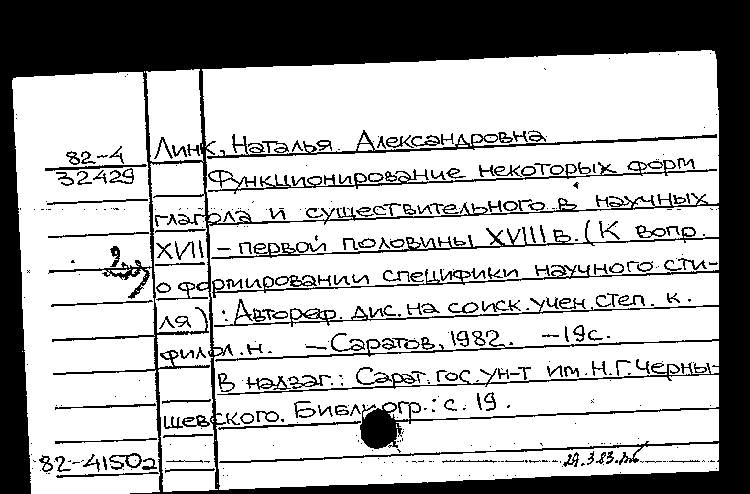 82-4
32429
Линк, Наталья Александровна
Функционирование некоторых форм
глагола и существительного в научных
XVII – первой половины XVIII в. (К вопр.
о формировании специфики научного сти-
ля) : Автореф. дис. на соиск. учен. степ. к.
филол. н. – Саратов, 1982. – 19с.
В надзаг.: Сарат. гос. ун-т им. Н.Г. Черны-
шевского. Библиогр.: с. 19.
82-41502
29.3.83